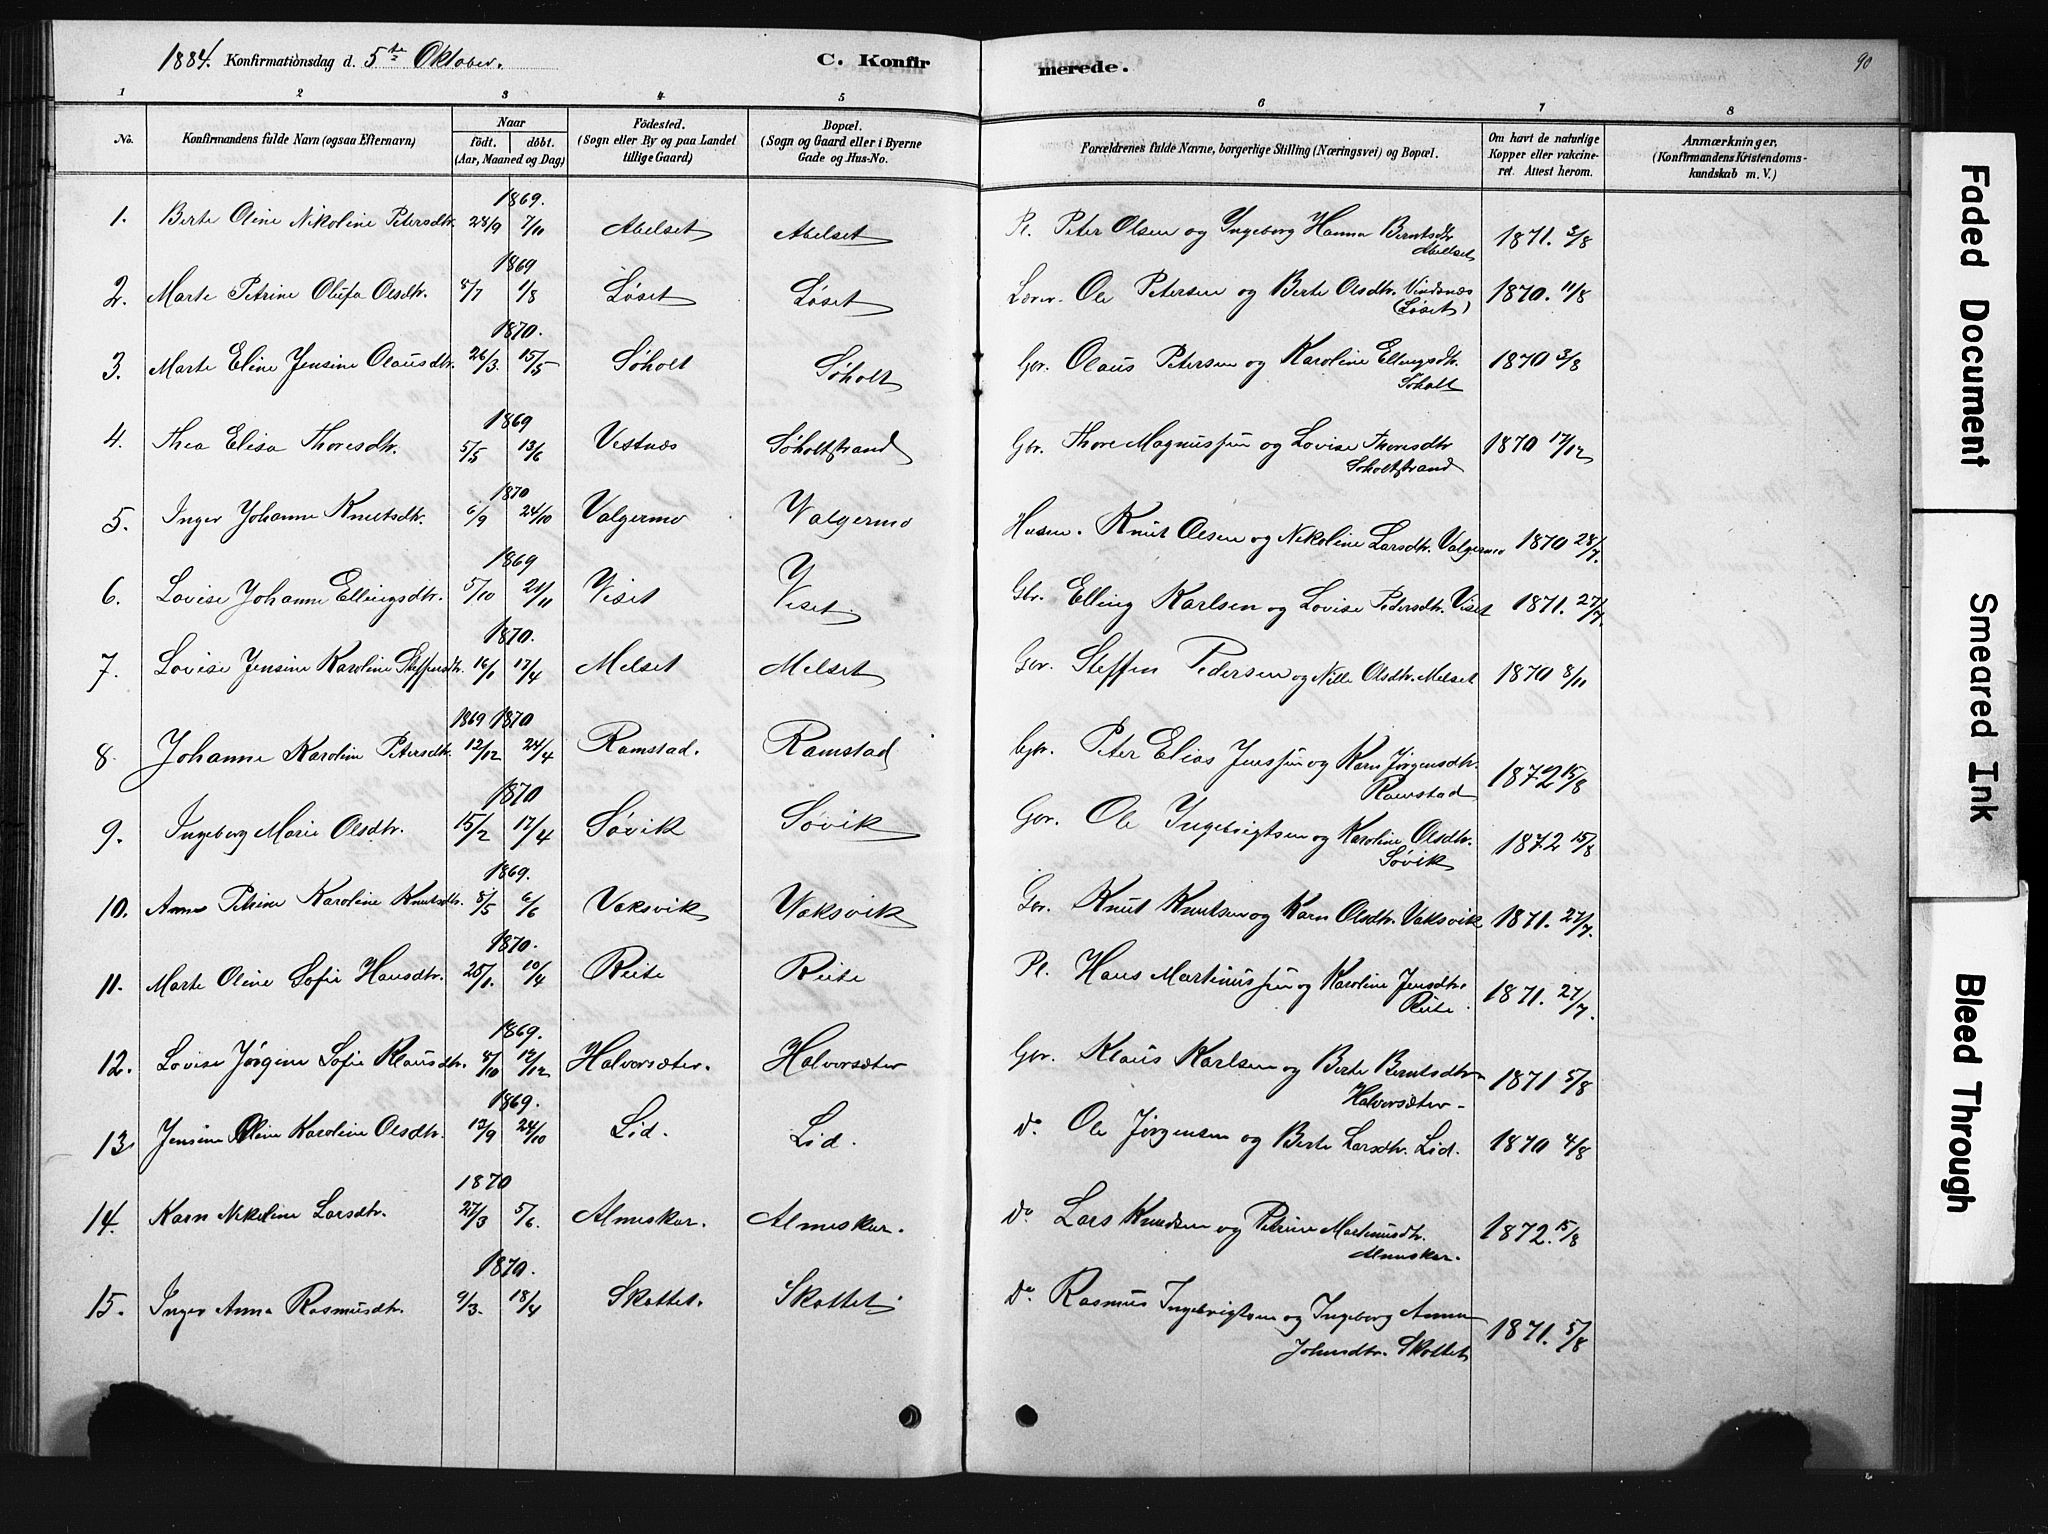 1884. Konfirmationsdag d. 5te Oktober. C. Konfirmerede. 90
1 2 3 4 5 6 7 8
No. Konfirmandens fulde Navn (ogsaa Efternavn) Naar født. døbt. (Aar, Maaned og Dag) Fødested. (Sogn eller By og paa Landet tillige Gaard) Bopæl. (Sogn og Gaard eller i Byerne Gade og Hus-No. Forældrenes fulde Navne, borgerlige Stilling (Næringsvei) og Bopæl. Om havt de naturlige Kopper eller vakcineret. Attest herom. Anmærkninger, (Konfirmandens Kristendomskundskab m. V.)
1869.
1. Berte Oline Nikoline Petersdtr. 28/9 7/10 Abelset Abelset Pl. Peter Olsen og Ingeborg Hanna Berntsdtr Abelset 1871. 3/8
1869
2. Marte Petrine Olufa Olsdtr. 8/7 1/8 Løset Løset Lærer. Ole Petersen og Berte Olsdtr. Vindsnæs (Løset) 1870. 11/8
1870.
3. Marte Eline Jensine Olausdtr. 26/3. 15/5 Søholt Søholt Gbr. Olaus Petersen og Karoline Ellingsdtr. Søholt 1870 3/8
1869
4. Thea Elisa Thoresdtr. 5/5 13/6 Vestnæs Søholtstrand Gbr. Thore Magnussen og Lovise Thoresdtr Søholtstrand 1870 17/12
1870
5. Inger Johanne Knutsdtr. 6/9 24/10 Valgermo Valgermo Husm. Knut Olsen og Nikoline Larsdtr. Valgermo 1870 28/7.
1869
6. Lovise Johanne Ellingsdtr. 5/10 21/11 Viset Viset Gbr. Elling Karlsen og Lovise Pedersdtr. Viset 1871. 27/7.
1870.
7. Lovise Jensine Karoline Steffensdtr. 16/1 17/4 Melset Melset Gbr. Steffen Pedersen og Nille Olsdtr. Melset 1870 8/11
1869 1870
8. Johanne Karoline Petersdtr. 12/12 24/4 Ramstad. Ramstad Gbr. Peter Elias Jenssen og Karn Jørgensdtr. Ramstad 1872 15/8
1870
9. Ingeborg Marie Olsdtr. 15/2 17/4 Søvik Søvik Gbr. Ole Ingebrigtsen og Karoline Olsdtr. Søvik 1872 15/8
1869.
10. Anne Petrine Karoline Knutsdtr. 8/5 6/6 Vaksvik Vaksvik Gbr. Knut Knutsen og Karn Olsdtr. Vaksvik 1871. 27/7.
1870.
11. Marte Oline Sofie Hansdtr. 25/1. 10/4 Reite Reite Pl. Hans Martinussen og Karoline Jensdtr. Reite. 1871. 27/7.
1869.
12. Lovise Jørgine Sofie Klausdtr. 8/10 12/12 Halvorsæter. Halvorsæter Gbr. Klaus Karlsen og Berte Berntsdtr Halvorsæter 1871 5/8
1869.
13. Jensine Oline Karoline Olsdtr. 12/9 24/10 Lid. Lid. do Ole Jørgensen og Berte Larsdtr. Lid. 1870 4/8
1870
14. Karn Nikoline Larsdtr. 27/3 5/6. Almeskar. Almeskar. do Lars Knudsen og Petrine Martinusdtr. Almeskar. 1872. 15/8
1870.
15. Inger Anna Rasmusdtr. 9/3. 18/4 Skottet. Skottet do Rasmus Ingebrigtsen og Ingeborg Anna Johnsdtr. Skottet 1871. 5/8
Faded Document
Smeared Ink
Bleed Through